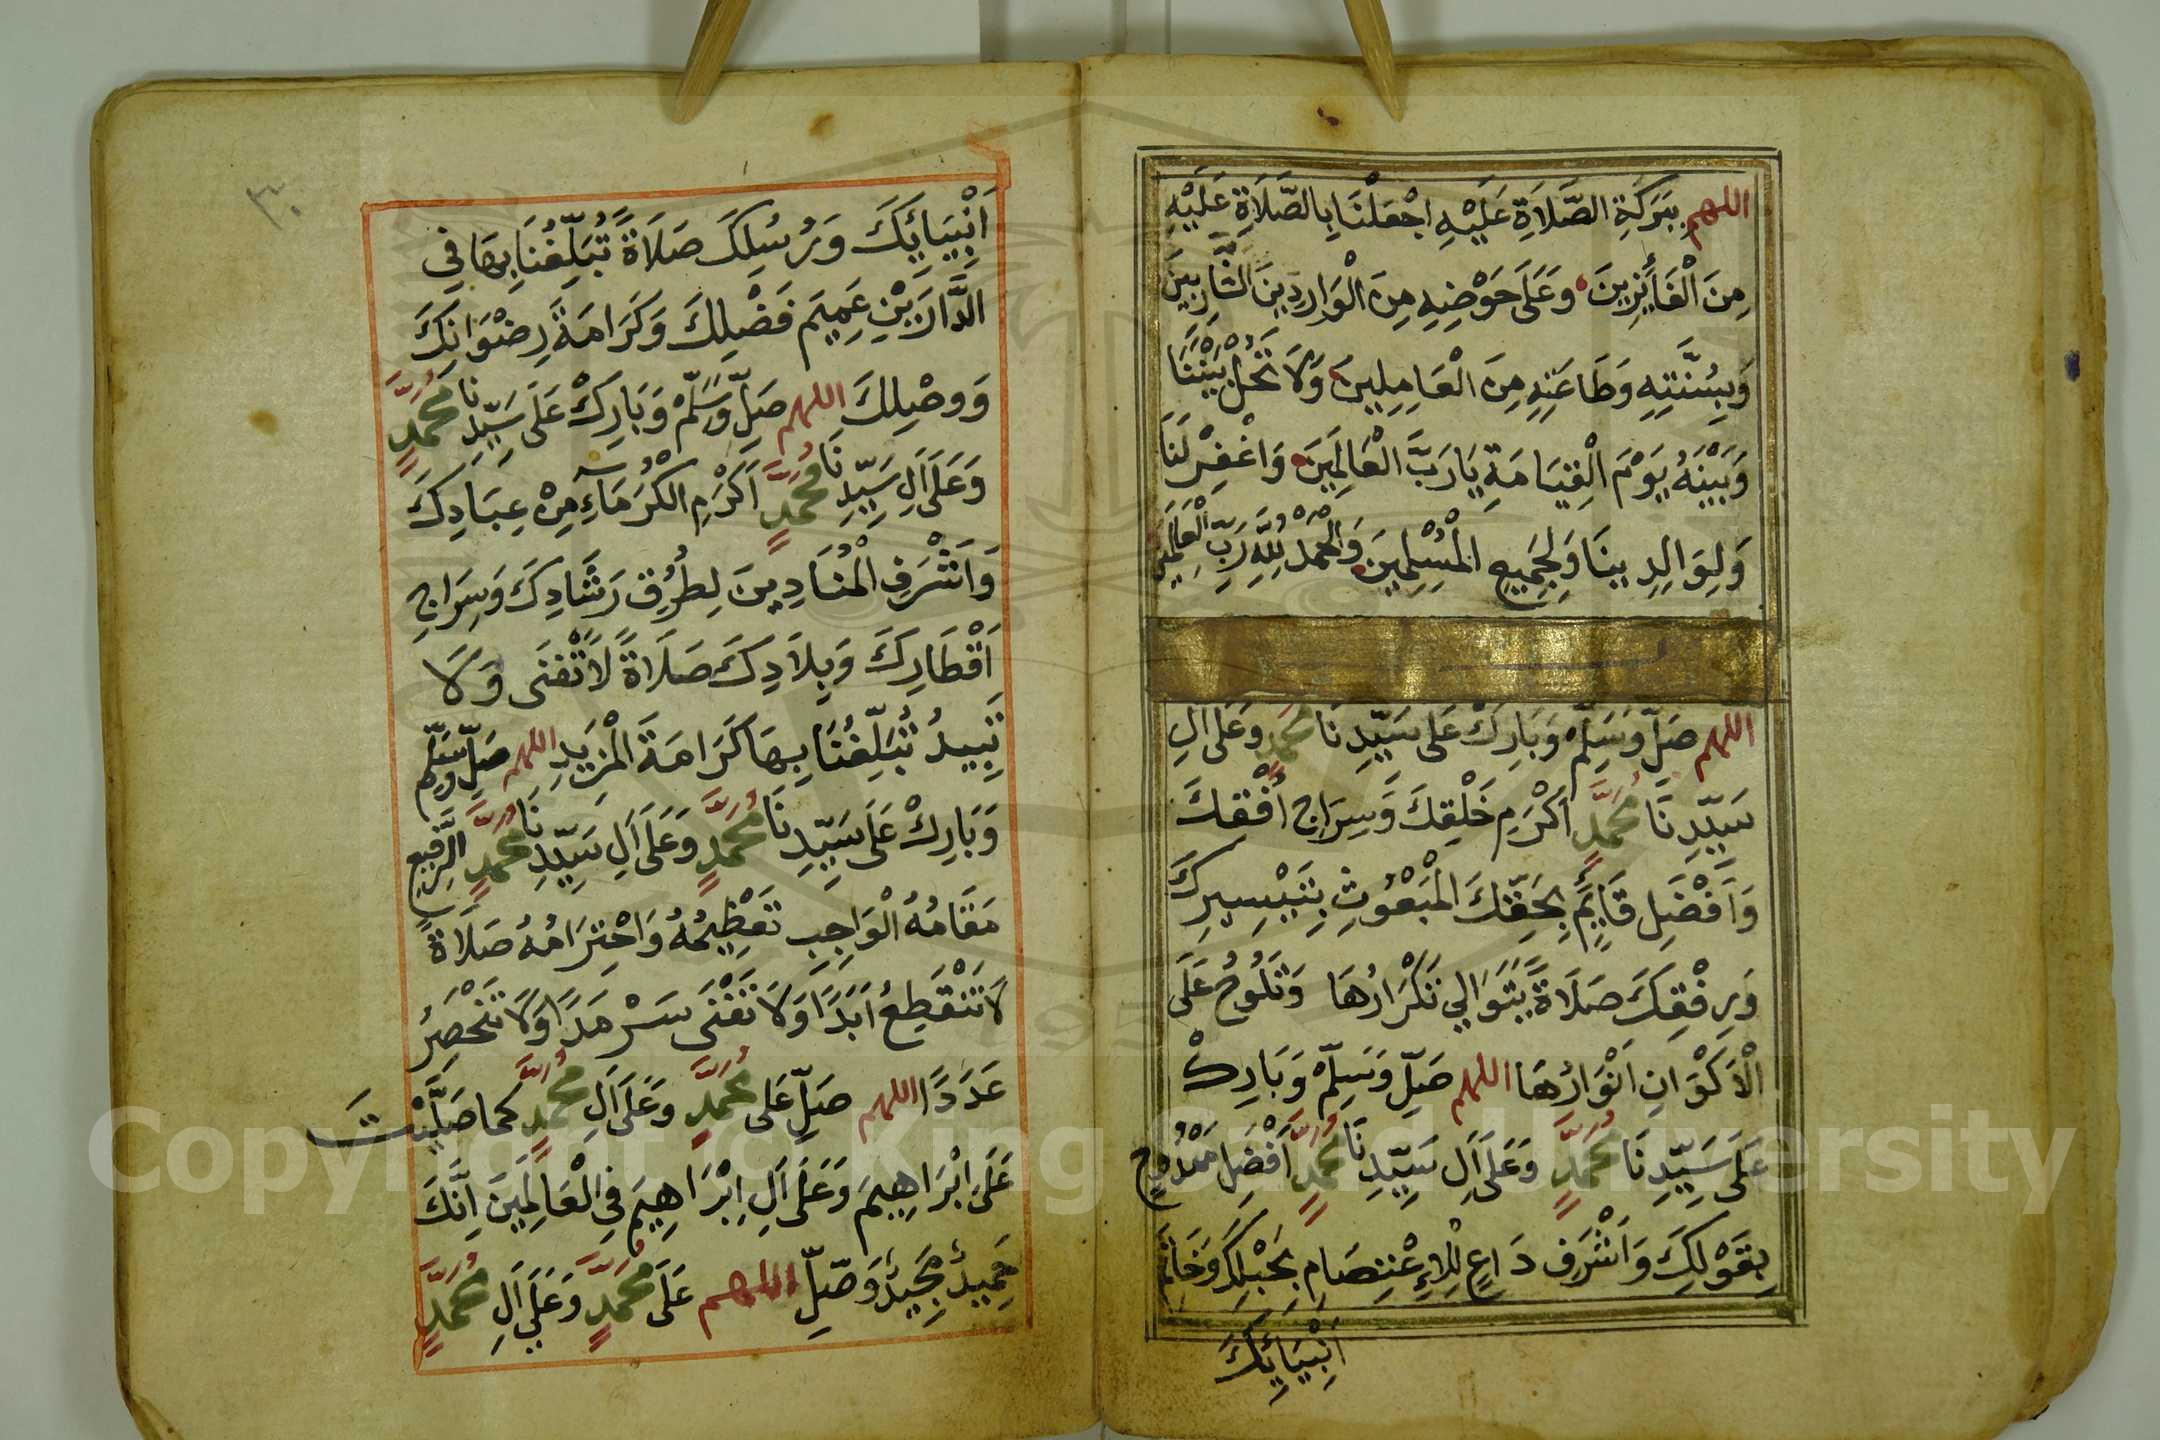 اللهم بِبَرَكَةِ الصَّلَاةِ عَلَيْهِ اجْعَلْنَا بِالصَّلَاةِ عَلَيْهِ
مِنَ الْفَائِزِينَ وَعَلَى حَوْضِهِ مِنَ الْوَارِدِينَ الشَّارِبِينَ
وَبِسُنَّتِهِ وَطَاعَتِهِ مِنَ الْعَامِلِينَ وَلَا تَحُلْ بَيْنَنَا
وَبَيْنَهُ يَوْمَ الْقِيَامَةِ يَارَبَّ الْعَالَمِينَ وَاغْفِرْ لَنَا
وَلِوَالِدِينَا وَلِجَمِيعِ الْمُسْلِمِينَ وَالْحَمْدُ لِلَّهِ رَبِّ الْعَالَمِينَ
اللهم صَلِّ وَسَلِّمْ وَبَارِكْ عَلَى سَيِّدِنَا مُحَمَّدٍ وَعَلَى الِ
سَيِّدِنَا مُحَمَّدٍ اَكْرَمِ خَلْقِكَ وَسِرَاجِ اُفْقِكَ
وَاَفْضَلِ قَايِمٍ بِحَقِّكَ الْمَبْعُوثِ بِتَيْسِيرِكَ
وَرِفْقِكَ صَلَاةً يَتَوَالِي تَكْرَارُهَا وَتَلُوحُ عَلَى
الْاَكْوَانِ اَنْوَارُهَا اللهم صَلِّ وَسَلِّمْ وَبَارِكْ
عَلَى سَيِّدِنَا مُحَمَّدٍ وَعَلَى اَلِ سَيِّدِنَا مُحَمَّدٍ اَفْضَلِ مَمْدُوحٍ
بِقَوْلِكَ وَاَشْرَفِ دَاعٍ لِلْاِعْتِصَامِ بِحَبْلِكَ وَخَاتَمِ
اَنْبِيَائِكَ
٣٠
اَنْبِيَايِكَ وَرُسُلِكَ صَلَاةً تُبَلِّغُنَا بِهَا فِي
الدَّارَيْنِ عَمِيمَ فَضْلِكَ وَكَرَامَةَ رِضْوَانِكَ
وَوَصْلِكَ اللهم صَلِّ وَسَلِّمْ وَبَارِكْ عَلَى سَيِّدِنَا مُحَمَّدٍ
وَعَلَى اَلِ سَيِّدِنَا مُحَمَّدٍ اَكْرَمِ الْكُرَمَآءِ مِنْ عِبَادِكَ
وَاَشْرَفِ الْمُنَادِينَ لِطُرُقِ رَشَادِكَ وَسِرَاجِ
اَقْطَارِكَ وَبِلَادِكَ صَلَاةً لَا تَفْنَى وَلَا
تَبِيدُ تُبَلِّغُنَا بِهَا كَرَامَةَ الْمَزِيدِ اللهم صَلِّ وَسَلِّمْ
وَبَارِكْ عَلَى سَيِّدِنَا مُحَمَّدٍ وَعَلَى اَلِ سَيِّدِنَا مُحَمَّدٍ الرَّفِيعِ
مَقَامُهُ الْوَاجِبِ تَعْظِيمُهُ وَاحْتِرَامُهُ صَلَاةً
لَا تَنْقَطِعُ اَبَدًا وَلَا تَفْنَى سَرْمَدًا وَلَا تَنْحَصِرُ
عَدَدًا اللهم صَلِّ عَلَى مُحَمَّدٍ وَعَلَى اَلِ مُحَمَّدٍ كما صَلَّيْتَ
عَلَى اِبْرَاهِيمَ وَعَلَى اَلِ اِبْرَاهِيمَ فِي الْعَالَمِينَ اِنَّكَ
حَمِيدٌ مَجِيدٌ وَصَلِّ اللهم عَلَى مُحَمَّدٍ وَعَلَى اَلِ مُحَمَّدٍ
Copyright © King Saud University